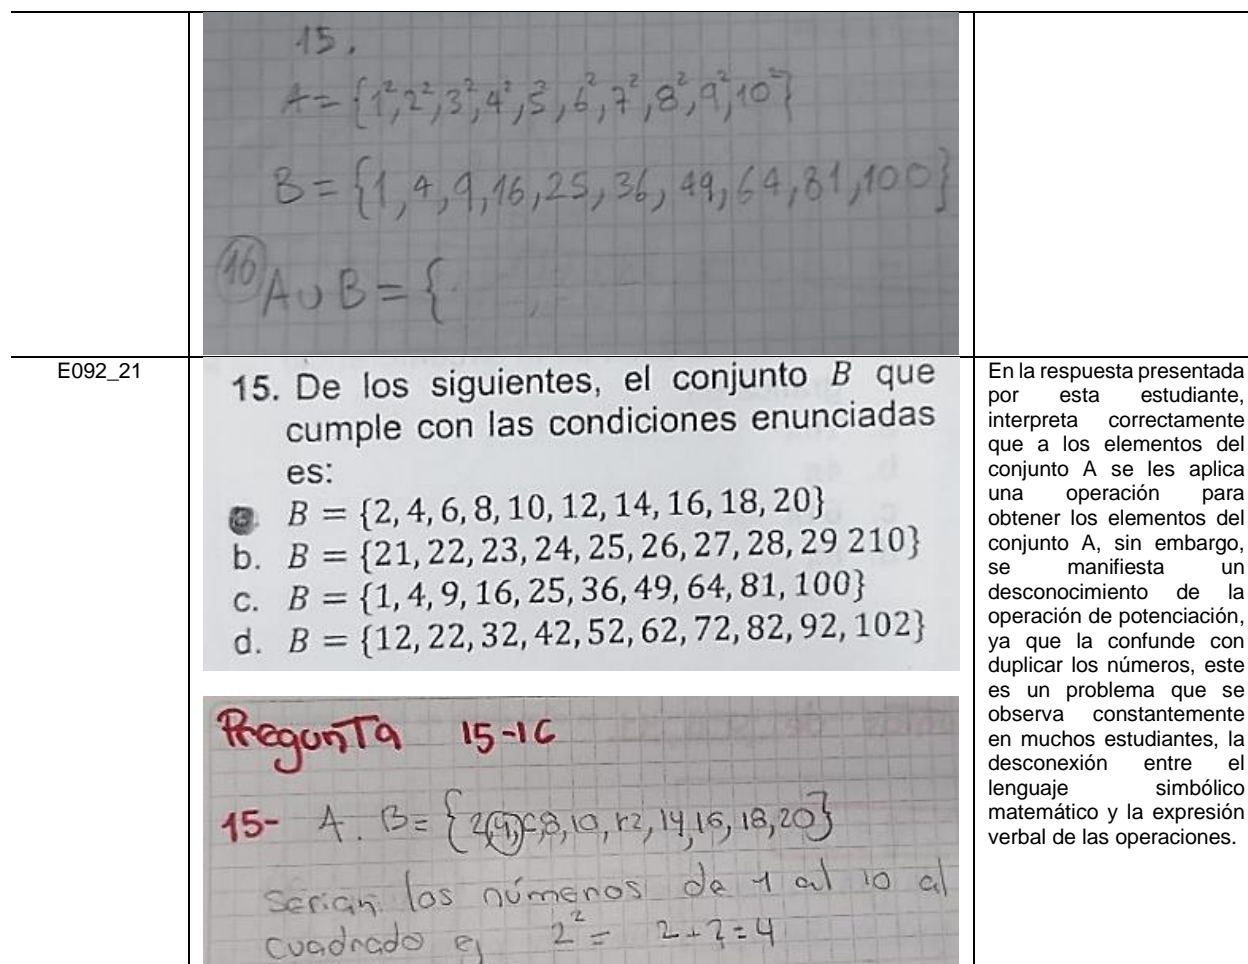 15.
A = {1²,2²,3²,4²,5²,6²,7²,8²,9²,10²}
B = {1,4,9,16,25,36,49,64,81,100}
16 A∪B = {
E092_21
15. De los siguientes, el conjunto B que
cumple con las condiciones enunciadas
es:
B = {2, 4, 6, 8, 10, 12, 14, 16, 18, 20}
b. B = {21, 22, 23, 24, 25, 26, 27, 28, 29 210}
c. B = {1, 4, 9, 16, 25, 36, 49, 64, 81, 100}
d. B = {12, 22, 32, 42, 52, 62, 72, 82, 92, 102}
Pregunta 15-16
15- A. B = {2,4,6,8,10,12,14,16,18,20}
Serian los números de 1 al 10 al
cuadrado 2² = 2+2=4
En la respuesta presentada
por esta estudiante,
interpreta correctamente
que a los elementos del
conjunto A se les aplica
una operación para
obtener los elementos del
conjunto A, sin embargo,
se manifiesta un
desconocimiento de la
operación de potenciación,
ya que la confunde con
duplicar los números, este
es un problema que se
observa constantemente
en muchos estudiantes, la
desconexión entre el
lenguaje simbólico
matemático y la expresión
verbal de las operaciones.